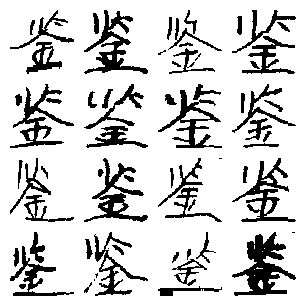 鉴鉴鉴鉴
鉴鉴鉴鉴
鉴鉴鉴鉴
鉴鉴鉴鉴